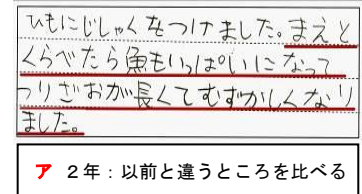 ひもにじしゃくをつけました。まえと
くらべたら魚もいっぱいになって
つりざおが長くてむずかしくなり
ました。
ア 2年：以前と違うところを比べる